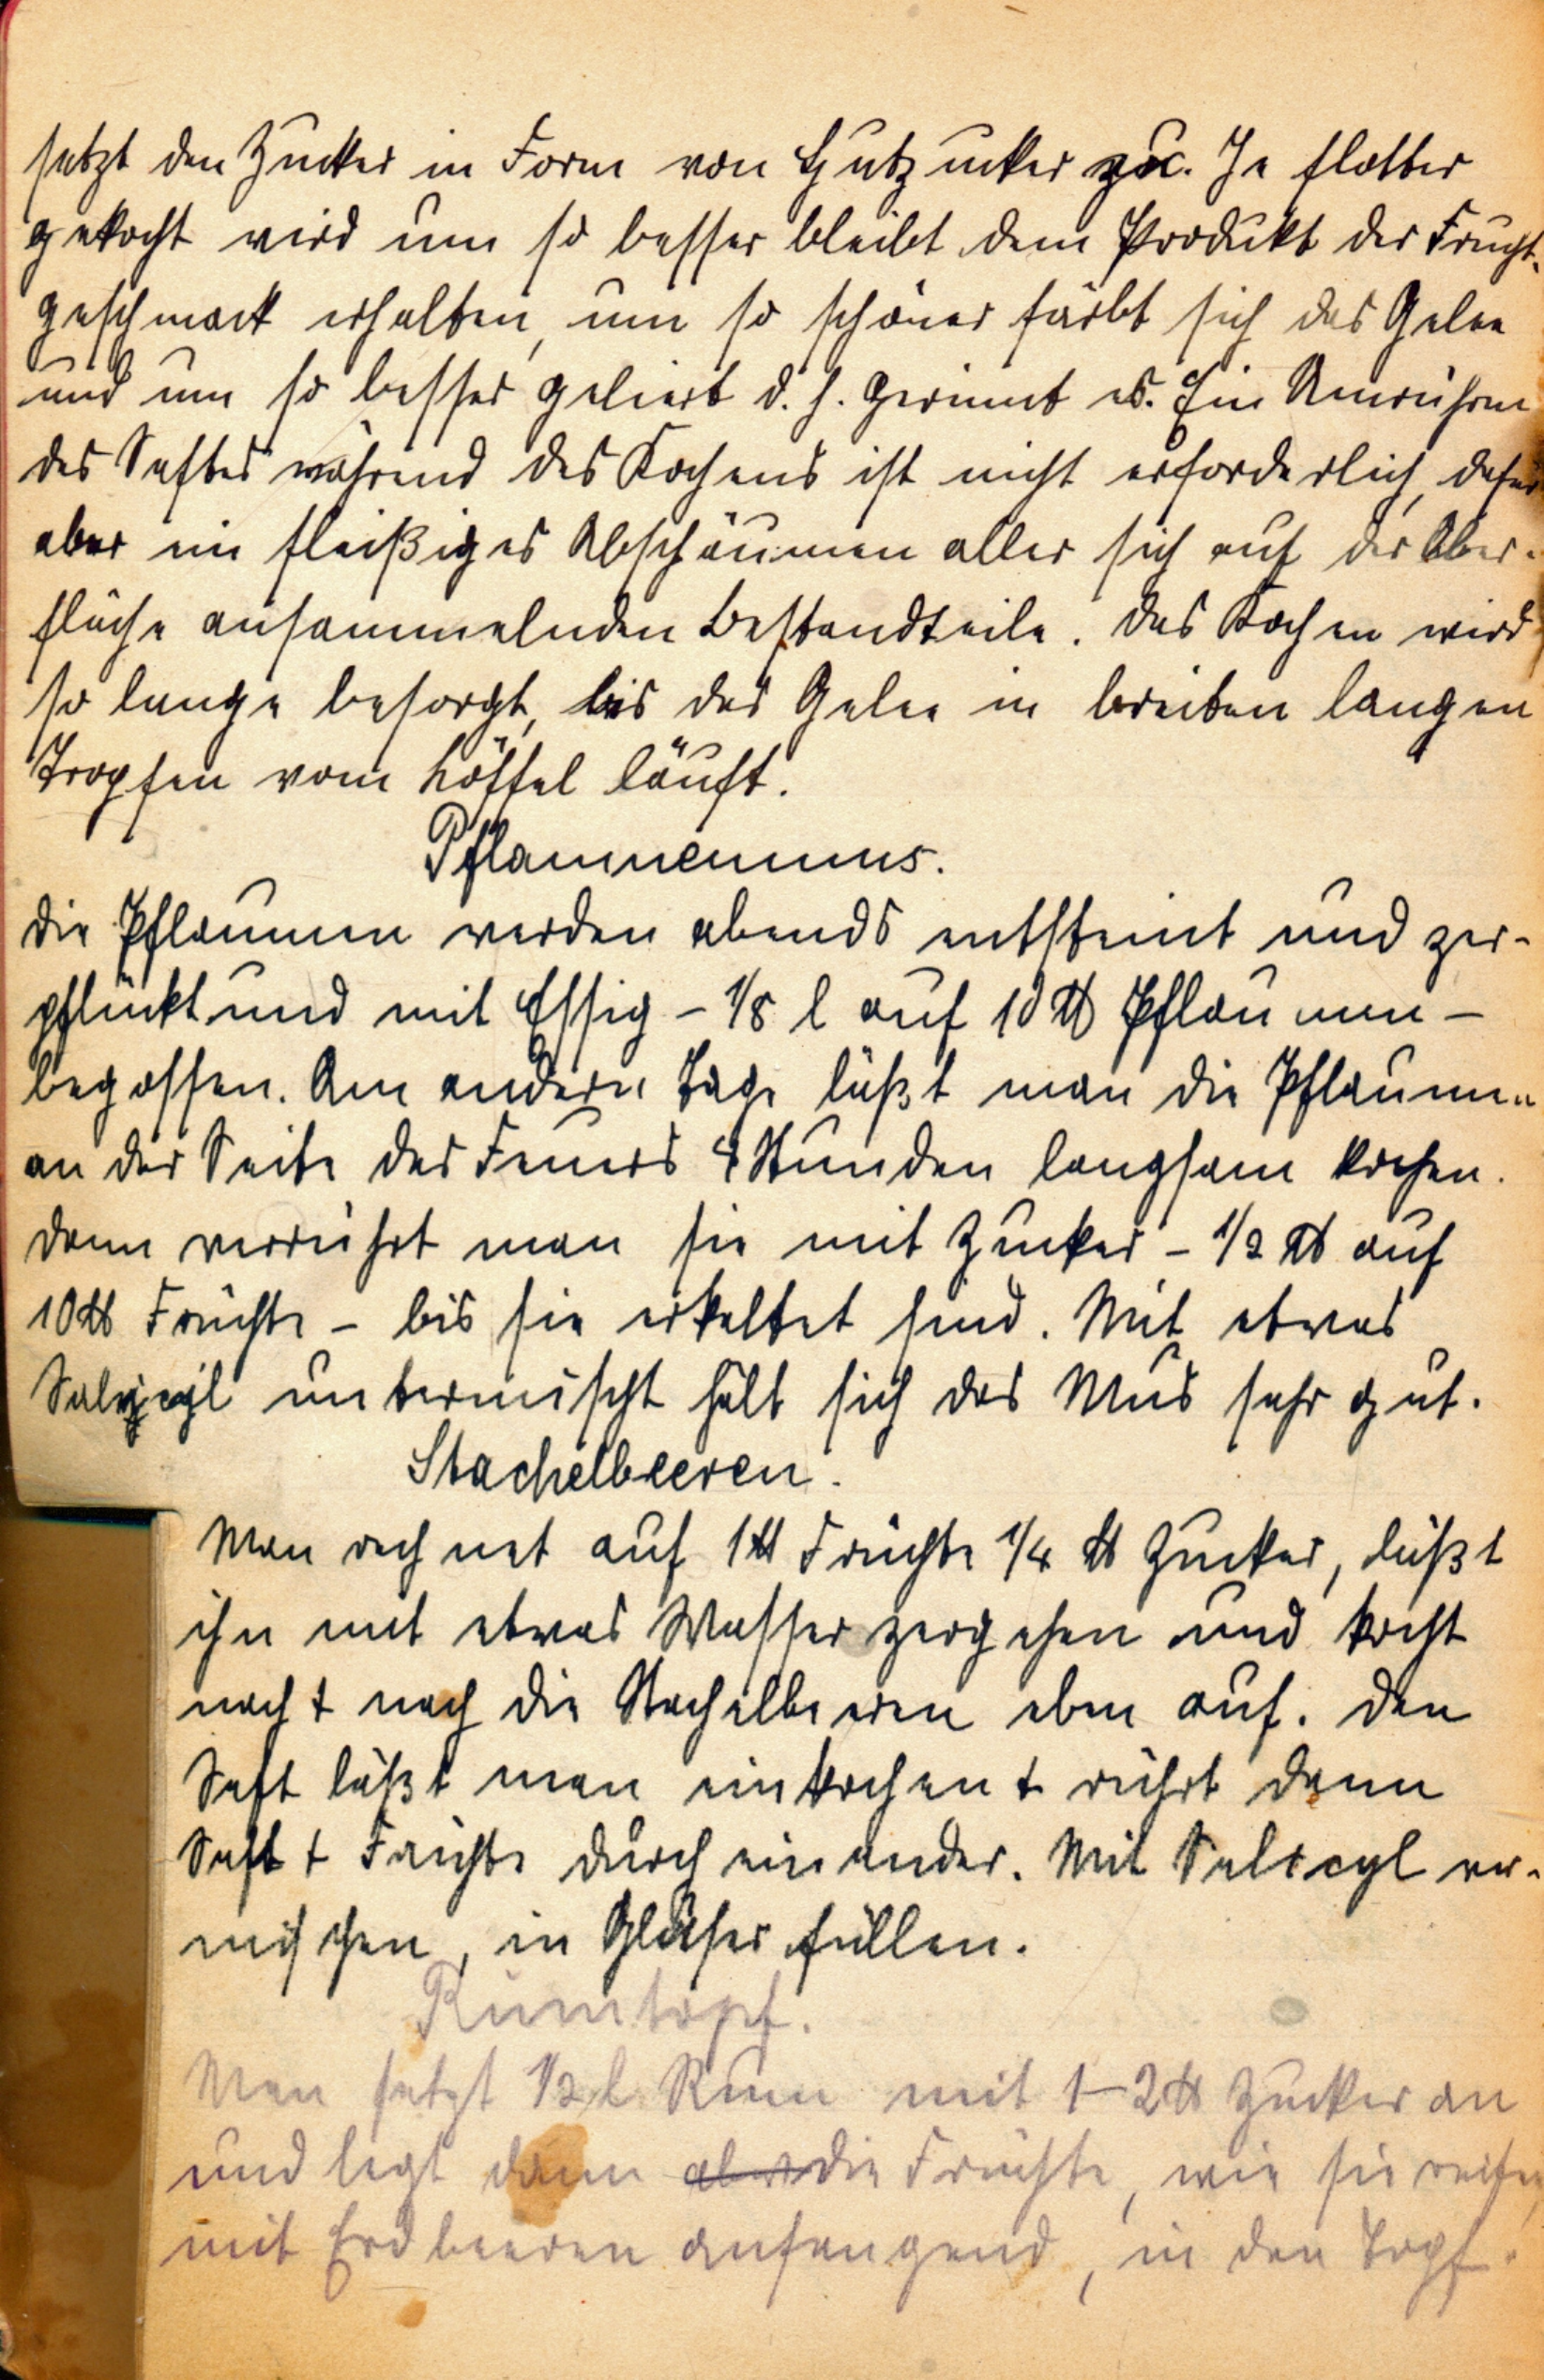 setzt den Zucker in Form von Hutzucker zu. Je flotter
gekocht wird um so besser bleibt dem Produkt der Frucht-
geschmack erhalten, um so schöner färbt sich das Gelee
und um so besser geliert d. h. gerinnt es. Ein Umrühren
des Saftes während des Kochens ist nicht erforderlich, dafür
aber ein fleißiges Abschäumen aller sich auf der Ober-
fläche ansammelnden Bestandteile. Das Kochen wird
so lange besorgt, bis das Gelee in breiten langen
Tropfen vom Löffel läuft.
Pflaumenmus.
Die Pflaumen werden abends entsteint und zer-
pflückt und mit Essig - 1/8 l auf 10 ℔ Pflaumen -
begossen. Am andern Tage läßt man die Pflaumen
an der Seite des Feuers 4 Stunden langsam kochen.
Dann verrührt man sie mit Zucker - 1/2 ℔ auf
10 ℔ Früchte - bis sie erkaltet sind. Mit etwas
Salycyl untermischt hält sich das Mus sehr gut.
Stachelbeeren.
Man rechnet auf 1 ℔ Früchte 1/4 ℔ Zucker, läßt
ihn mit etwas Wasser zergehen und kocht
nach + nach die Stachelbeeren eben auf. Den
Saft läßt man einkochen + rührt dann
Saft + Früchte durcheinander. Mit Salicyl ver-
mischen, in Gläser füllen.
Rumtopf.
Man setzt 1/2 l Rum mit 1-2 ℔ Zucker an
und legt dann aber die Früchte, wie sie reifen,
mit Erdbeeren anfangend, in den Topf.